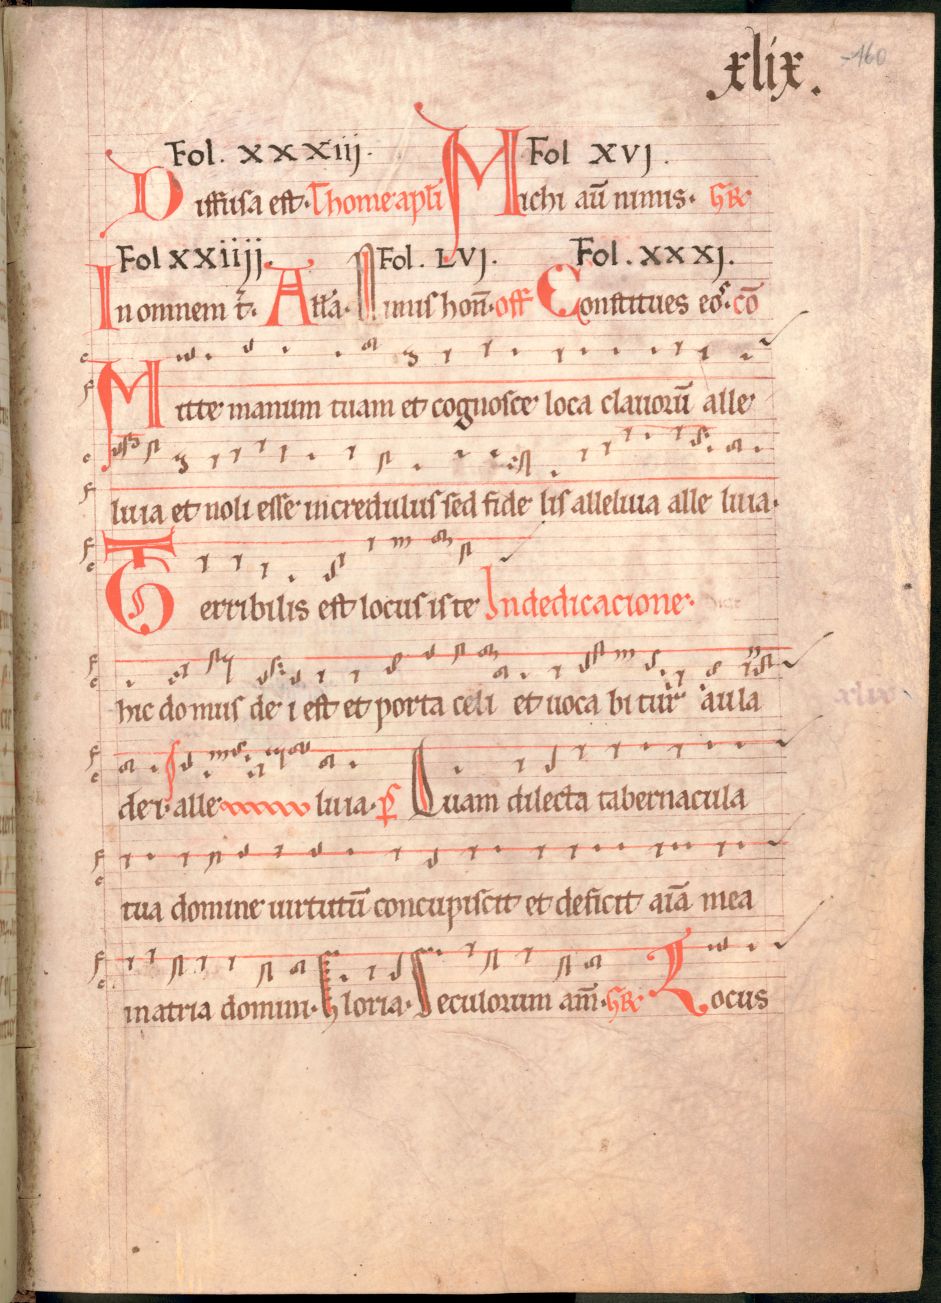 .xlix. 160
Fol. xxxiij. Fol xvj.
Diffusa est. Thome apl̄i Michi aū nimis. GR
Fol xxiiij. Fol. Lvj. Fol. xxxj.
In omnem t̄. All̄a. Nimis hon̄. off Constitues eos. cō
Mitte manum tuam et cognosce loca clauorū alle
luia et noli esse incredulus sed fide lis alleluia alle luia.
Terribilis est locus iste In dedicacione.
hic domus de i est et porta celi et uoca bi tur au la
de i. alle luia. p̄s Quam dilecta tabernacula
tua domine uirtutū concupiscit et deficit aīa mea
in atria domini. Gloria. Seculorum am̄. GR Locus